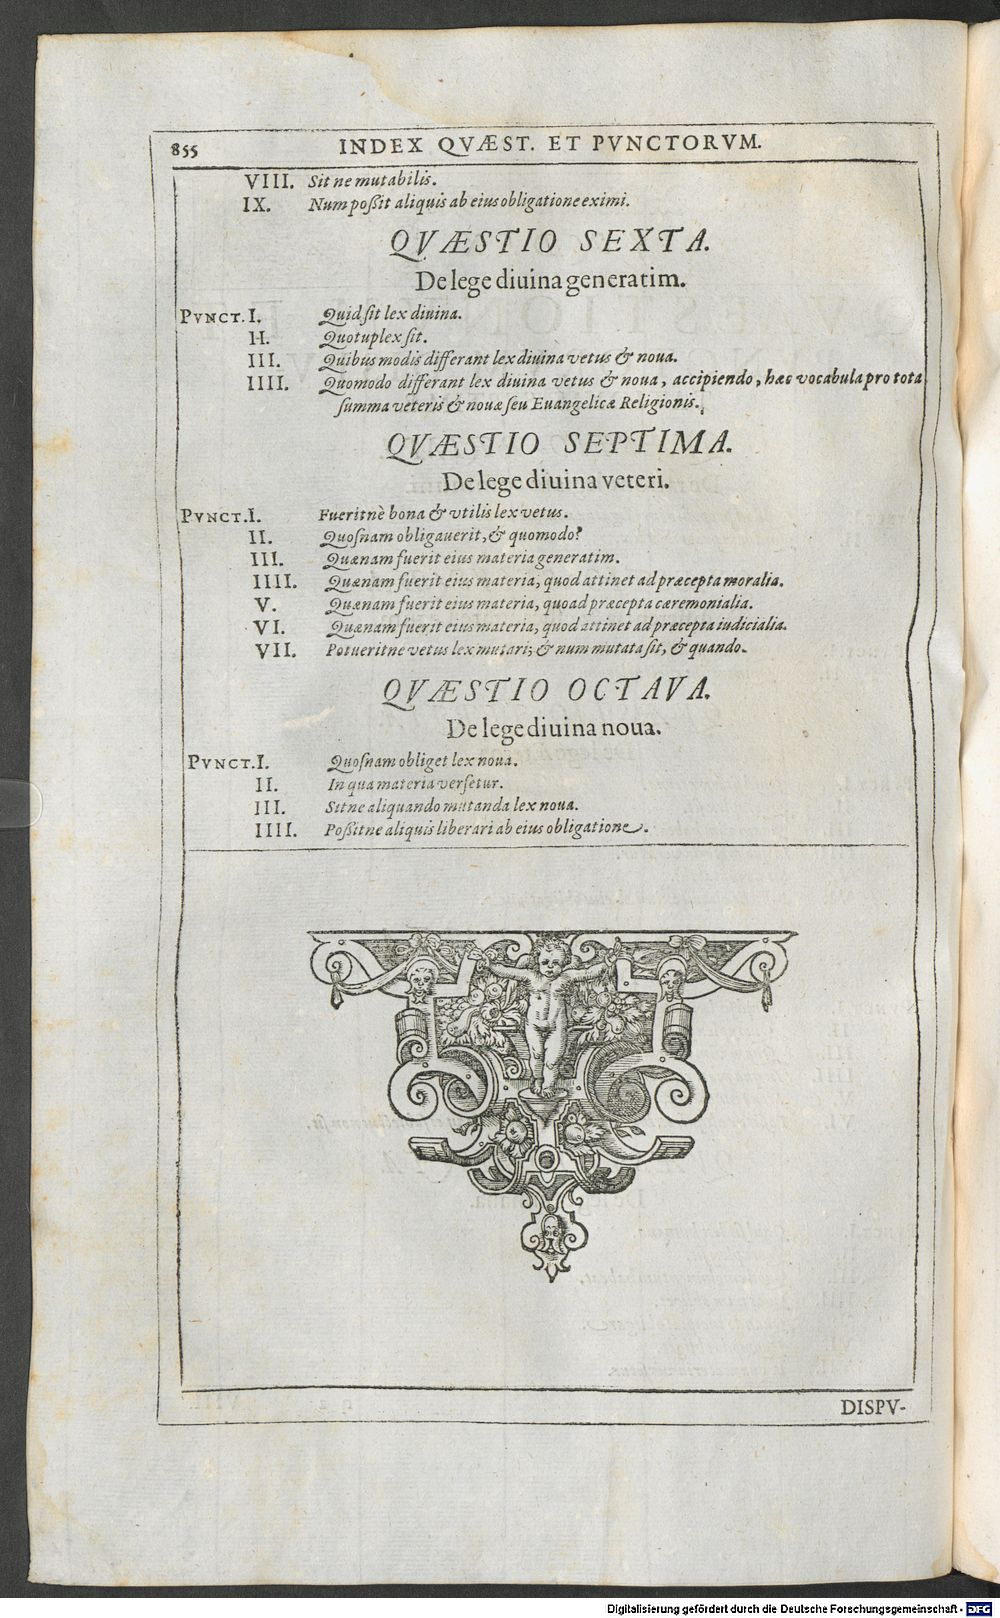 855 INDEX QVÆST. ET PVNCTORVM.
VIII. Sit ne mutabilis.
IX. Num poßit aliquis ab eius obligatione eximi.
QVÆSTIO SEXTA.
De lege diuina generatim.
PVNCT. I. Quid ſit lex diuina.
II. Quotuplex ſit.
III. Quibus modis differant lex diuina vetus & noua.
IIII. Quomodo differant lex diuina vetus & noua, accipiendo, hæc vocabula pro tota
ſumma veteris & nouæ ſeu Euangelicæ Religionis.
QVÆSTIO SEPTIMA.
De lege diuina veteri.
PVNCT. I. Fueritnè bona & vtilis lex vetus.
II. Quoſnam obligauerit, & quomodo?
III. Quænam fuerit eius materia generatim.
IIII. Quænam fuerit eius materia, quod attinet ad præcepta moralia.
V. Quænam fuerit eius materia, quoad præcepta cæremonialia.
VI. Quænam fuerit eius materia, quod attinet ad præcepta iudicialia.
VII. Potueritne vetus lex mutari; & num mutata ſit, & quando.
QVÆSTIO OCTAVA.
De lege diuina noua.
PVNCT. I. Quoſnam obliget lex noua.
II. In qua materia verſetur.
III. Sitne aliquando mutanda lex noua.
IIII. Poßitne aliquis liberari ab eius obligatione.
DISPV-
Digitalisierung gefördert durch die Deutsche Forschungsgemeinschaft - DFG